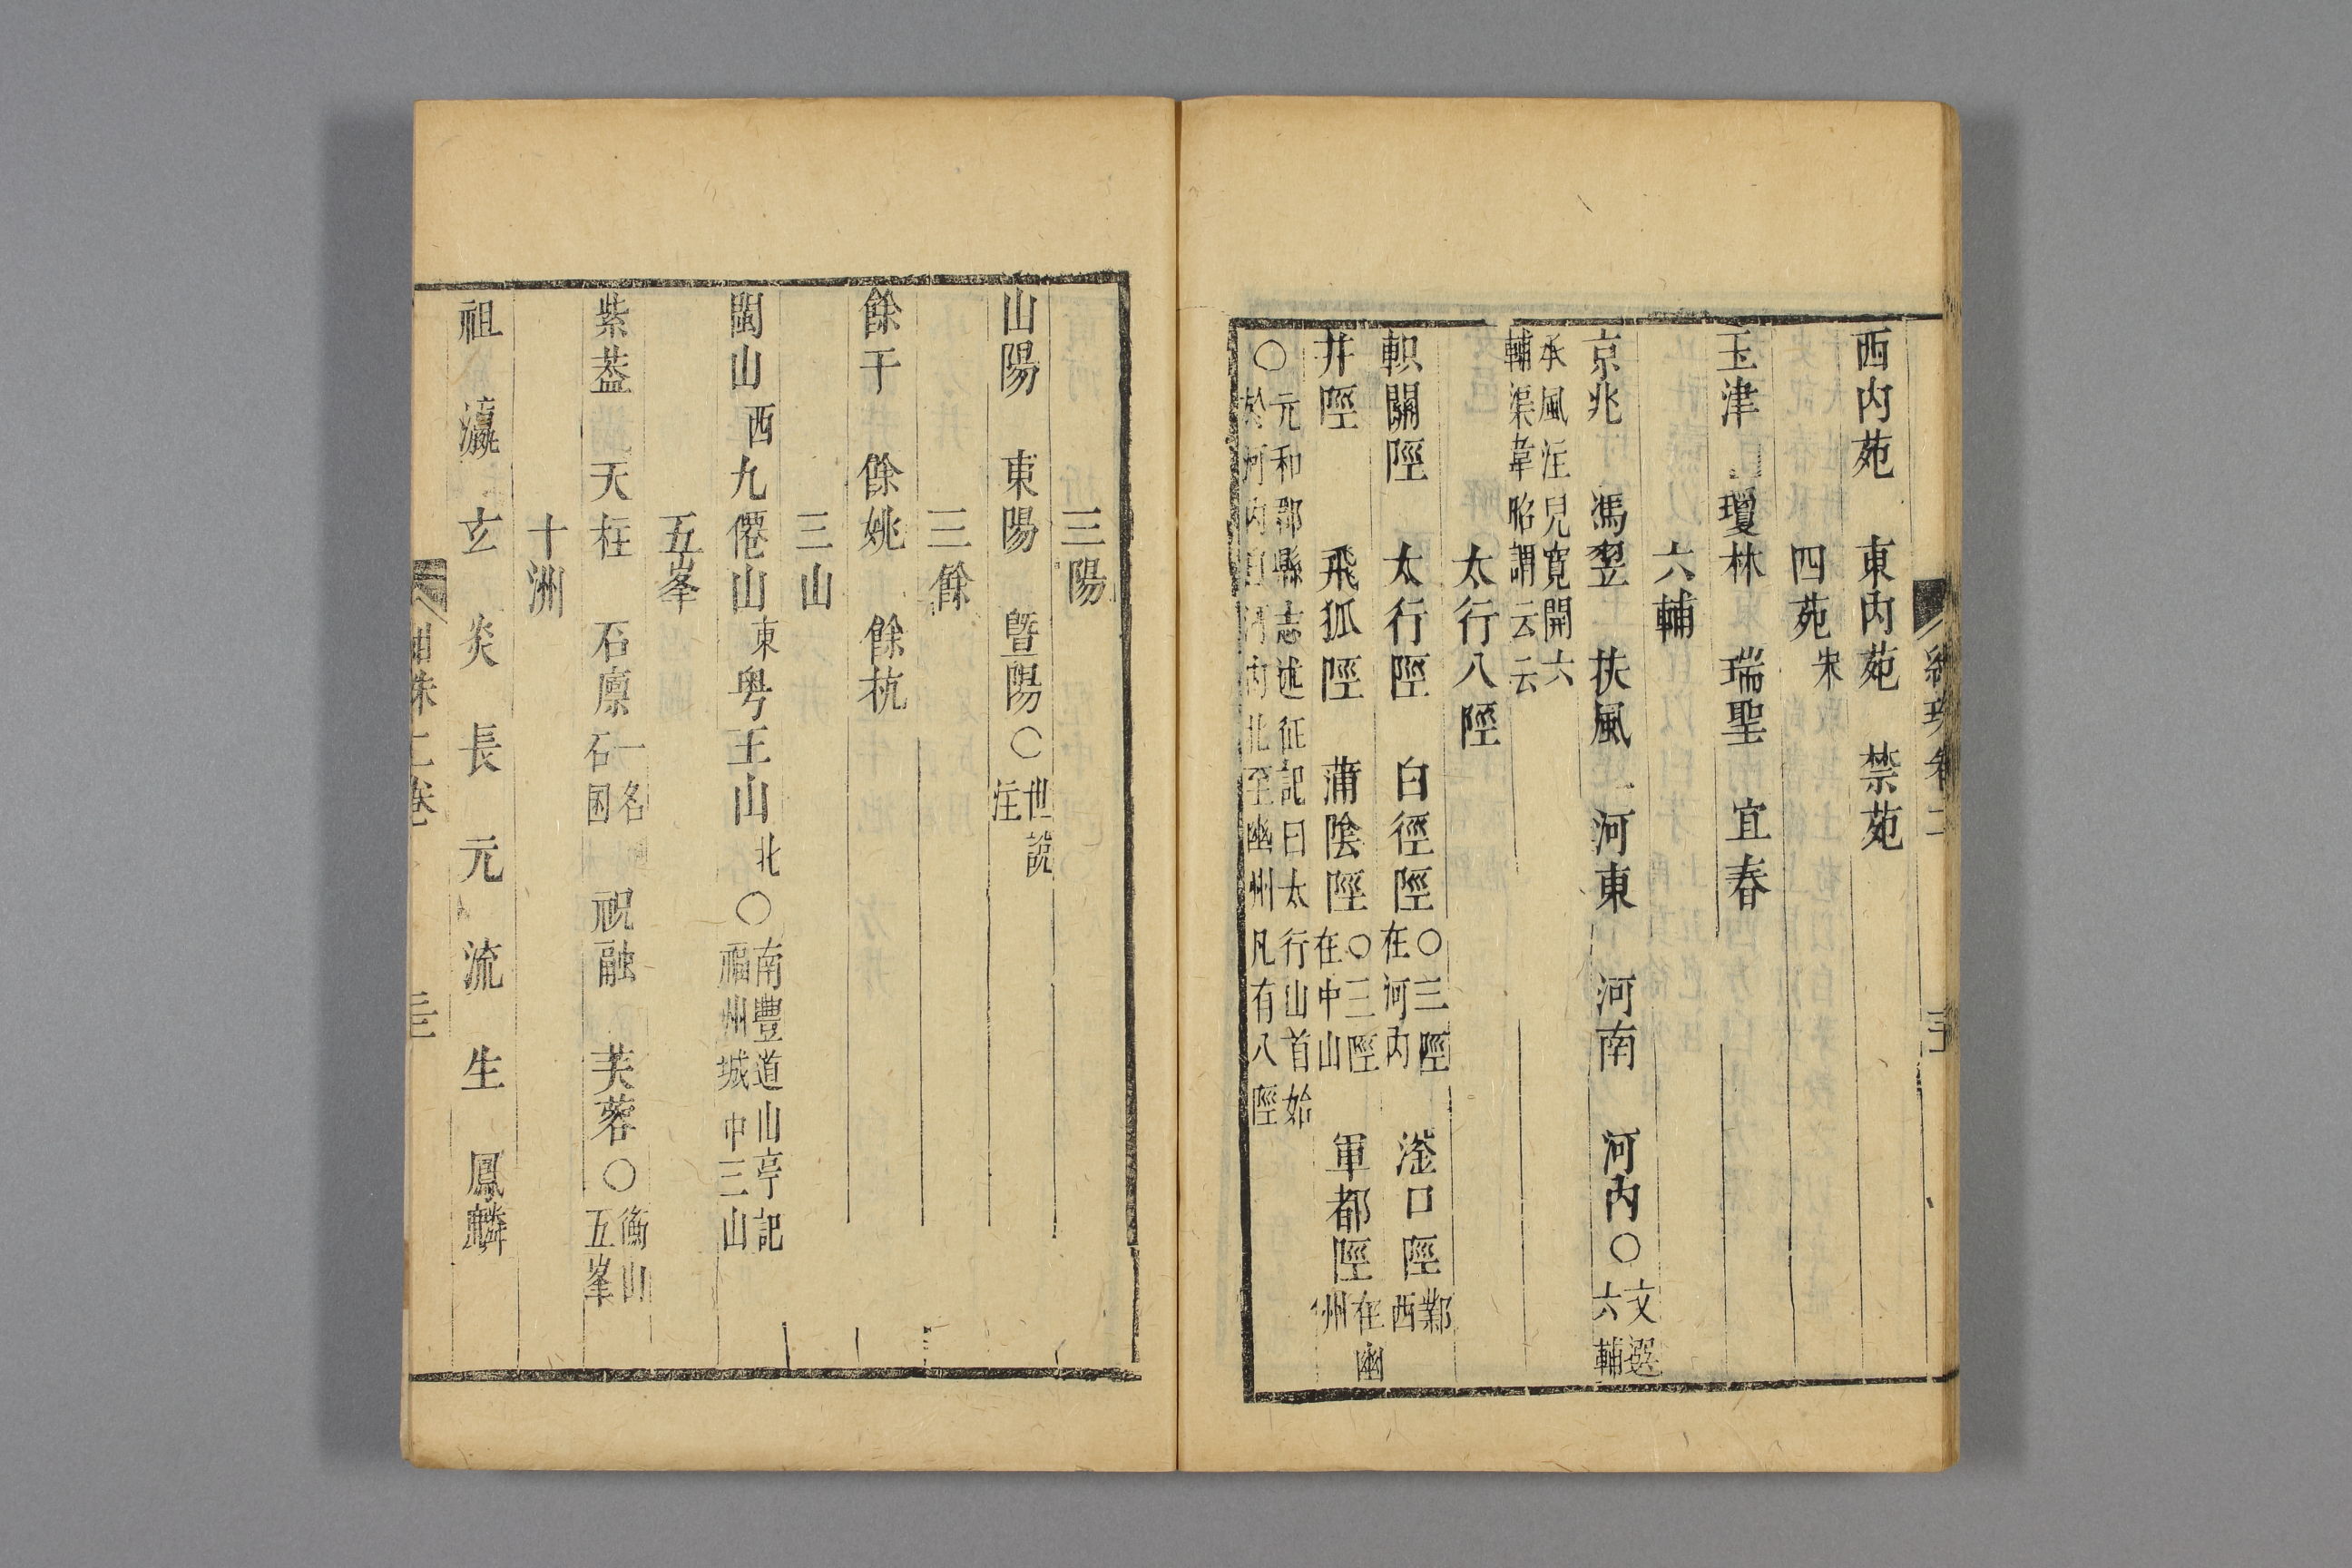 西内苑　東内苑　禁苑
四苑宋
玉津　瓊林　瑞聖　宜春
六輔
京兆　馮翌　扶風　河東　河南　河内〇文選六輔
承風注兒寛開六
輔渠韋昭謂云云
太行八陘
軹關陘　太行陘　白徑陘〇三陘在河内　滏口陘鄴西
井陘　飛狐陘　蒲陰陘〇三陘在中山　軍都陘在幽州
〇元和郡縣志述征記曰太行山首始
於河内自河内北至幽州凡有八陘
三陽
山陽　東陽　曁陽〇世說注
三餘
餘干　餘姚　餘杭
三山
閩山西　九僊山東　粤王山北〇南豐道山亭記福州城中三山
五峯
紫葢　天柱　石廩一名石囷　祝融　芙蓉〇衡山五峯
十洲
祖　瀛　玄　炎　長　元　流　生　鳳麟